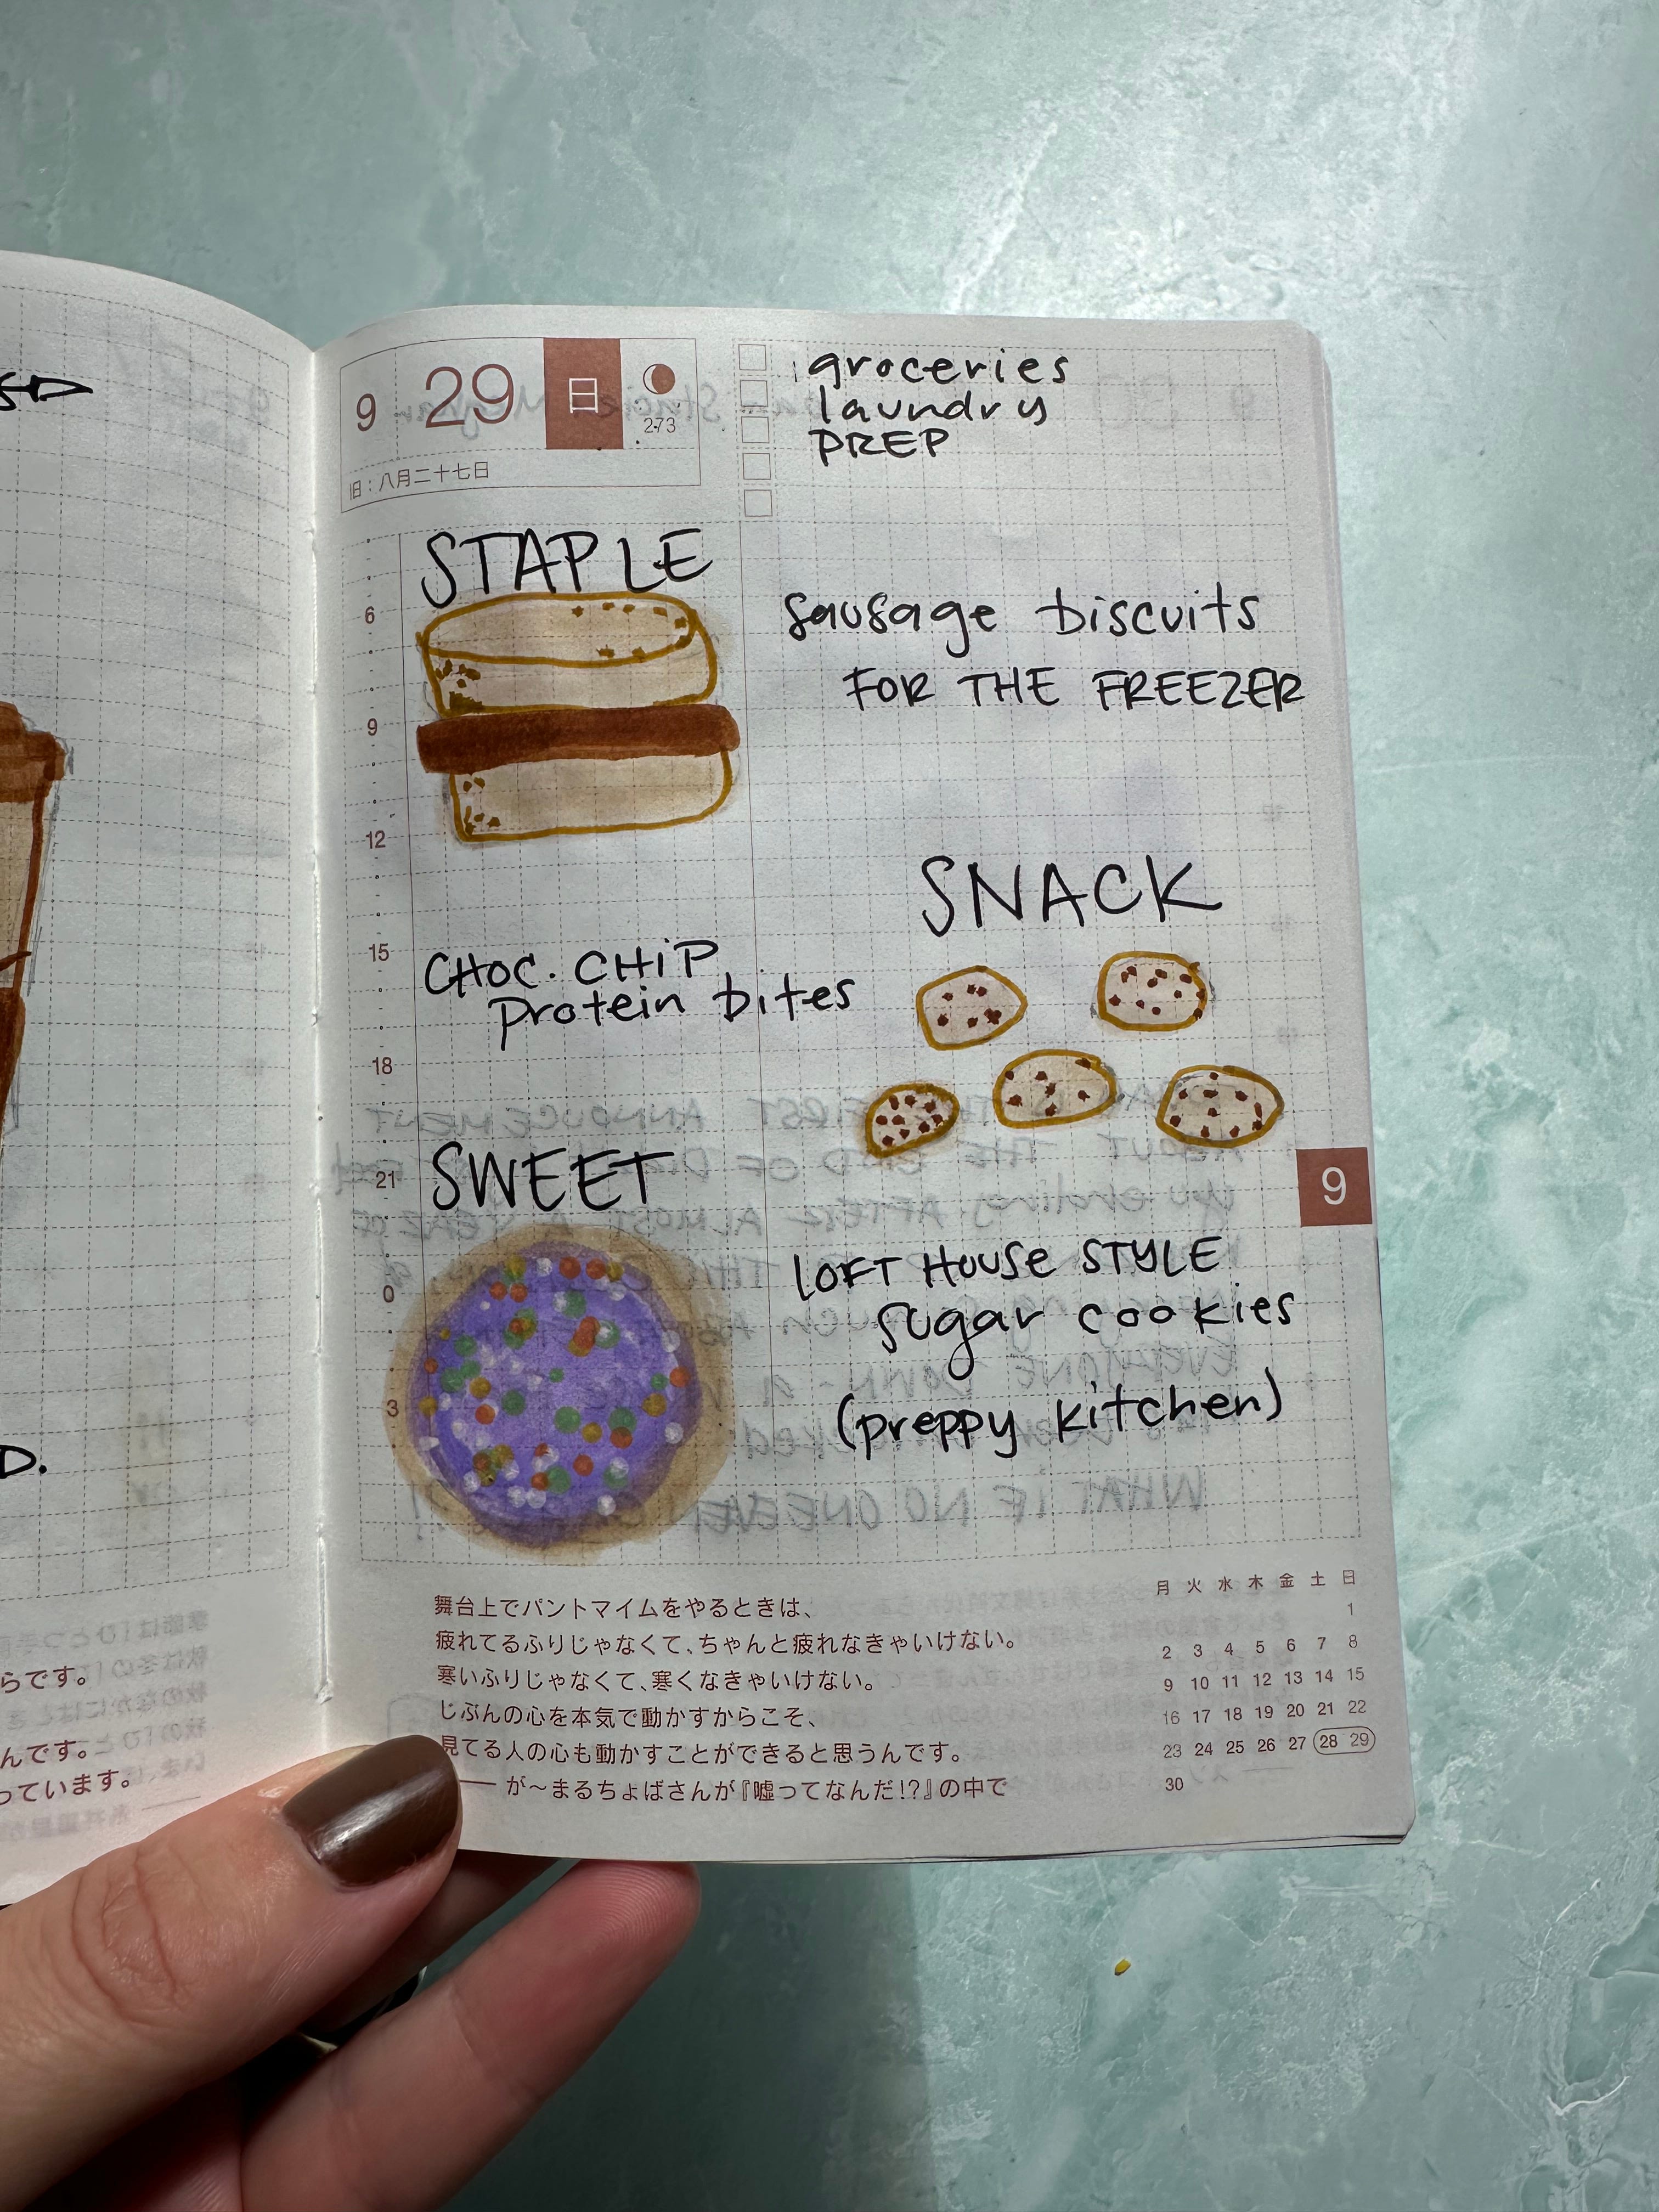 9 29 日
273
旧:八月二十七日
groceries
laundry
PREP
STAPLE
6
9
12
15
18
21
0
3
sausage biscuits
FOR THE FREEZER
SNACK
CHOC. CHIP
protein bites
SWEET
9
LOFT HOUSE STYLE
sugar cookies
(preppy kitchen)
舞台上でパントマイムをやるときは、
疲れてるふりじゃなくて、ちゃんと疲れなきゃいけない。
寒いふりじゃなくて、寒くなきゃいけない。
じぶんの心を本気で動かすからこそ、
見てる人の心も動かすことができると思うんです。
── が〜まるちょばさんが『嘘ってなんだ!?』の中で
月 火 水 木 金 土 日
1
2 3 4 5 6 7 8
9 10 11 12 13 14 15
16 17 18 19 20 21 22
23 24 25 26 27 28 29
30
D.
らです。
んです。
っています。